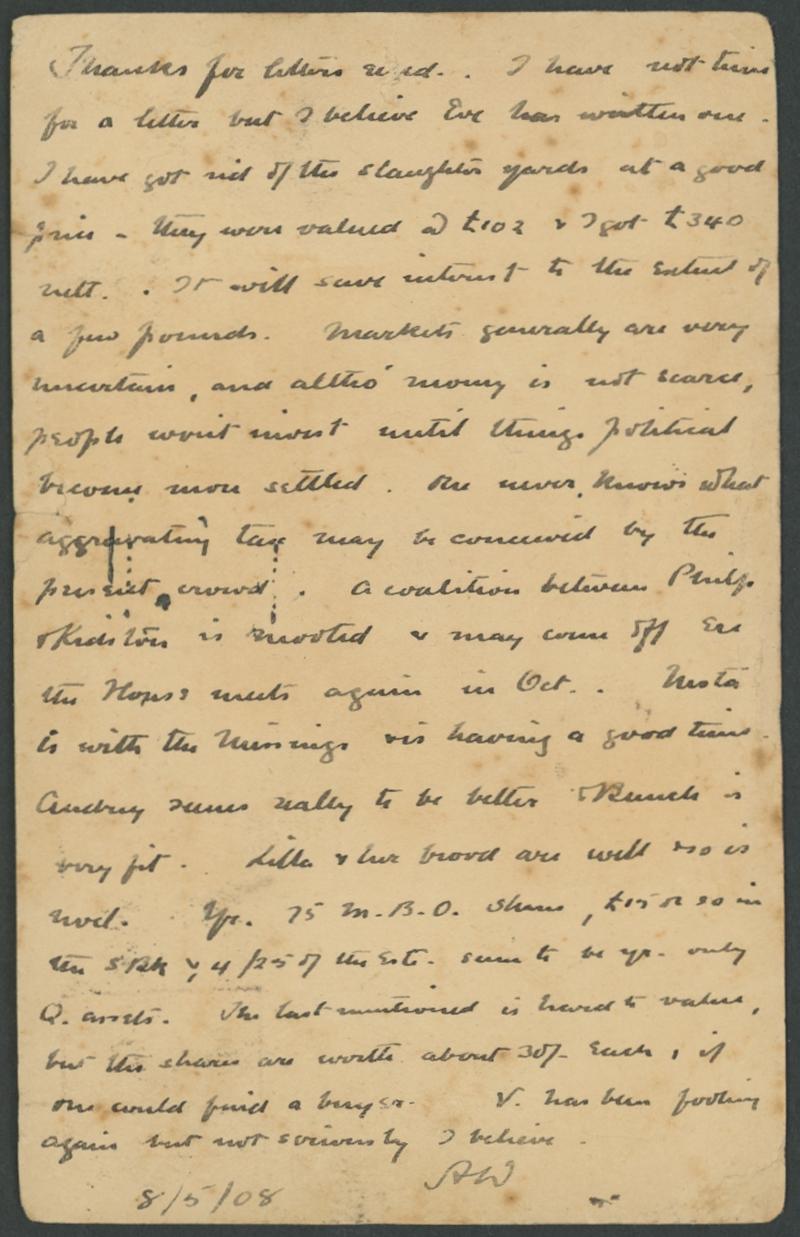 Thanks for letters recd.. I have not time
for a letter but I believe Eve has written one.
I have got rid of the slaughter yards at a good
price - they were valued @ £102 & I got £340
nett. . It will save interest to the extent of
a few pounds. Markets generally are very
uncertain, and altho' money is not scarce,
people won't invest until things political
become more settled. One never knows what
aggravating tax may be conceived by the
present crowd. A coalition between Philp
& Kidston is mooted & may come off ere
the House meets again in Oct.. Nesta
is with the & is having a good time.
Audrey seems really to be better & Bunch is
very fit. Lilla & her brood are well & so is
Noel. Yr. 75 M.B.O. shares, £15 or so in
the S Bk & 4/25 of the Este. seem to be yr. only
Q. assets. The last mentioned is hard to value,
but the shares are worth about 30/- each, if
one could find a buyer. V. has been fooling
again but not seriously I believe.
AW
8/5/08